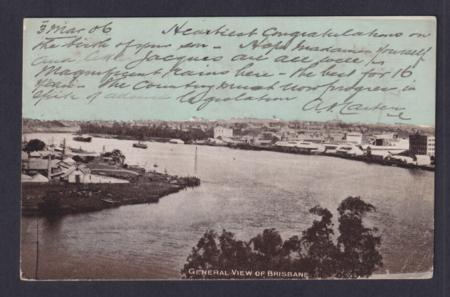 3 Mar 06 Heartiest Congratulations on
the birth of your son - Hope Madame Yourself
and Jacques are all well
Magnificent rains here - the best for 16
years. The Country must now progress in
spite of Legislation
GENERAL VIEW OF BRISBANE